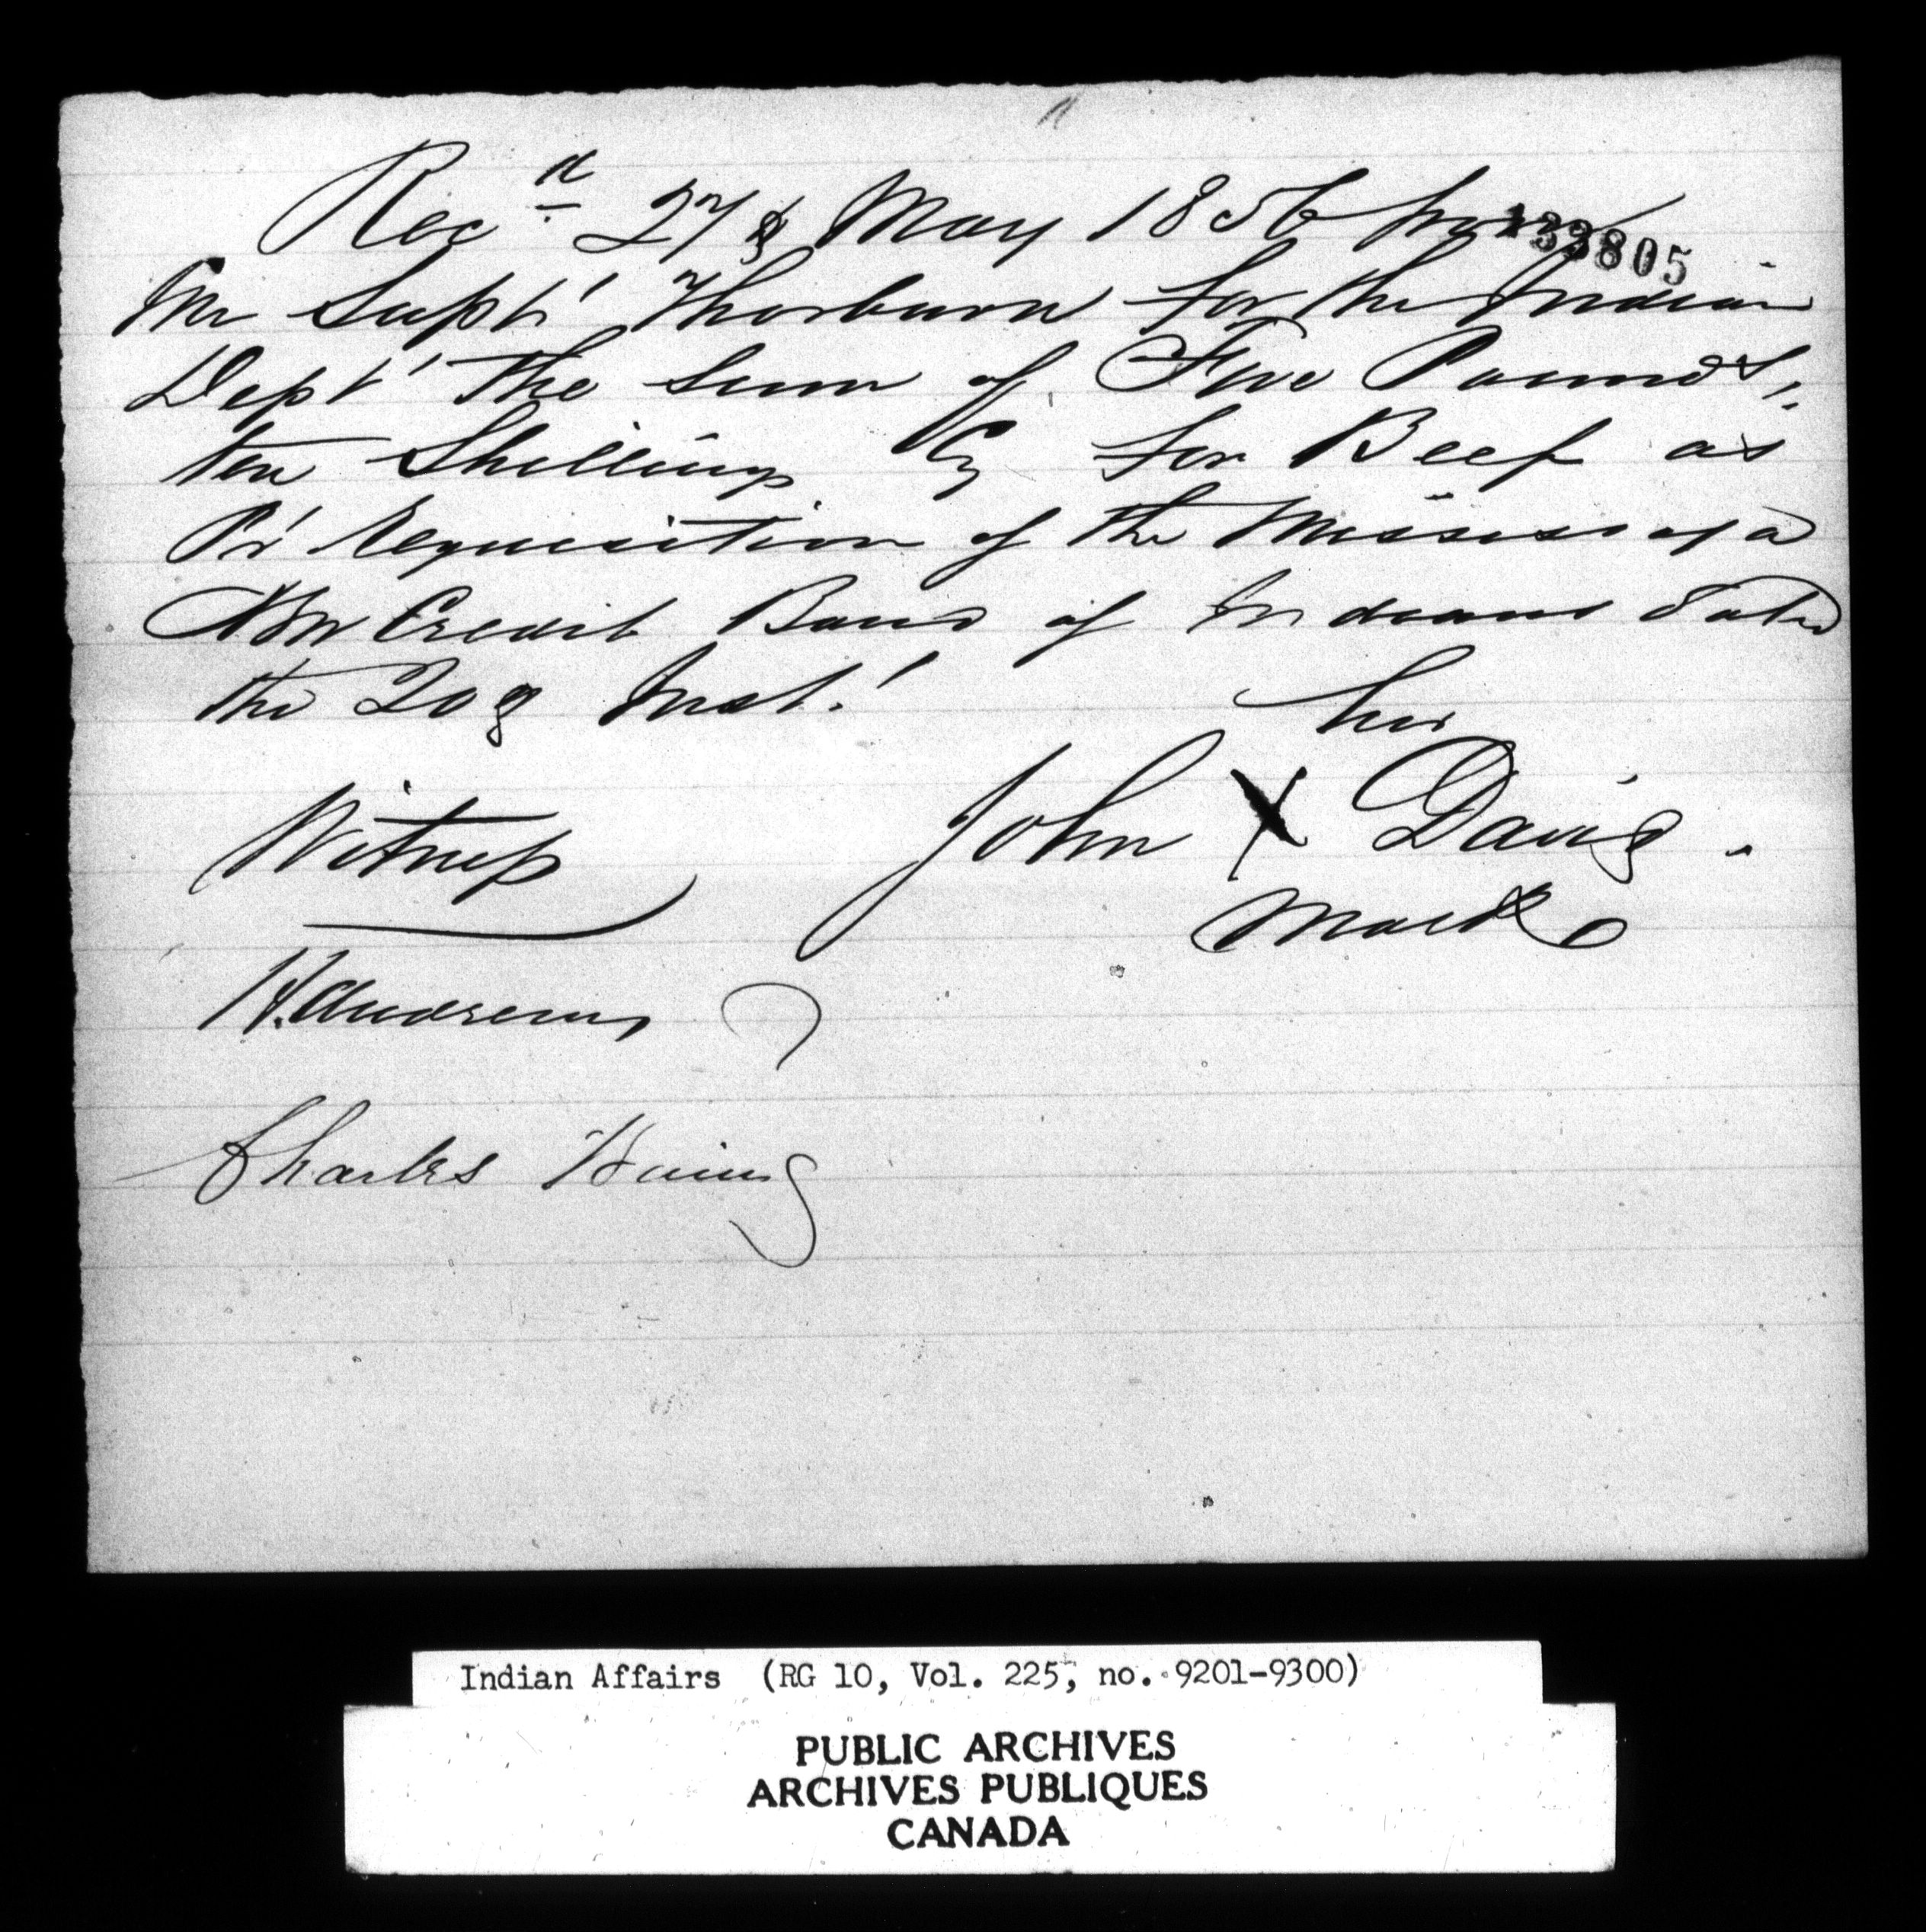 Rec^d 27 May 1856 from
133805
Mr Supt Thorburn for the Indian
Dept the Sum of Five Pounds,
ten Shillings Cy for Beef as
Pr requisition of the Mississaga
New Credit Band of Indians dated
the 20 Inst.
his
John X Davis.
mark
Witness
H. Andrews
Charles
Indian Affairs (RG 10, Vol. 225, no. 9201-9300)
PUBLIC ARCHIVES
ARCHIVES PUBLIQUES
CANADA